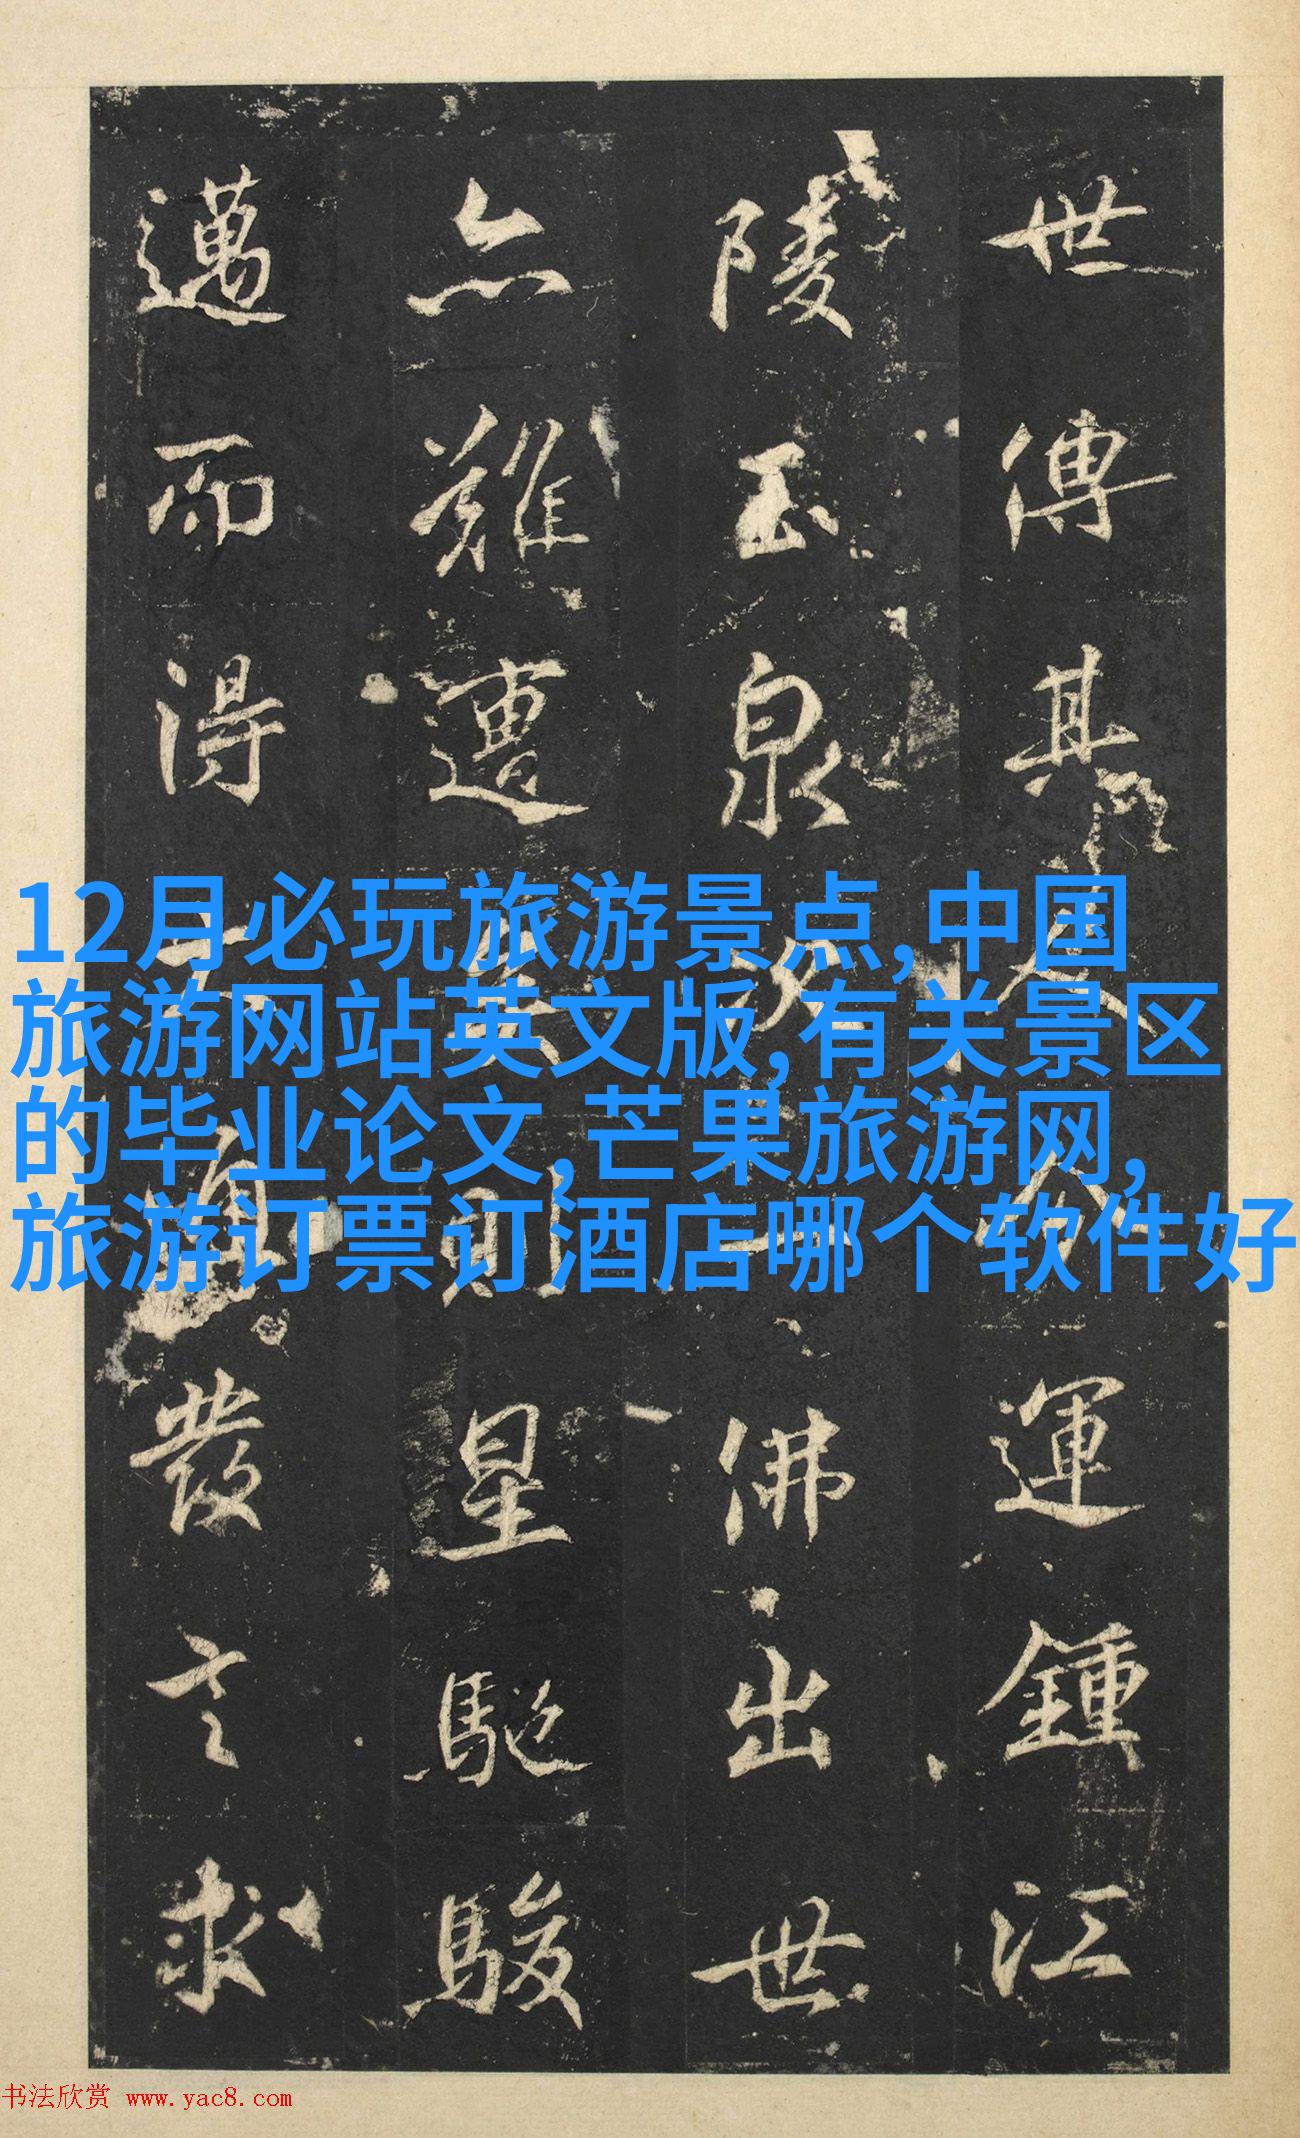 世傳其運鍾江
陵玉泉佛出世
亦難遭則星馳駿
邁而得發言求
12月必玩旅游景点,中国
旅游网站英文版,有关景区
的毕业论文,芒果旅游网,
旅游订票订酒店哪个软件好
书法欣赏 www.yac8.com